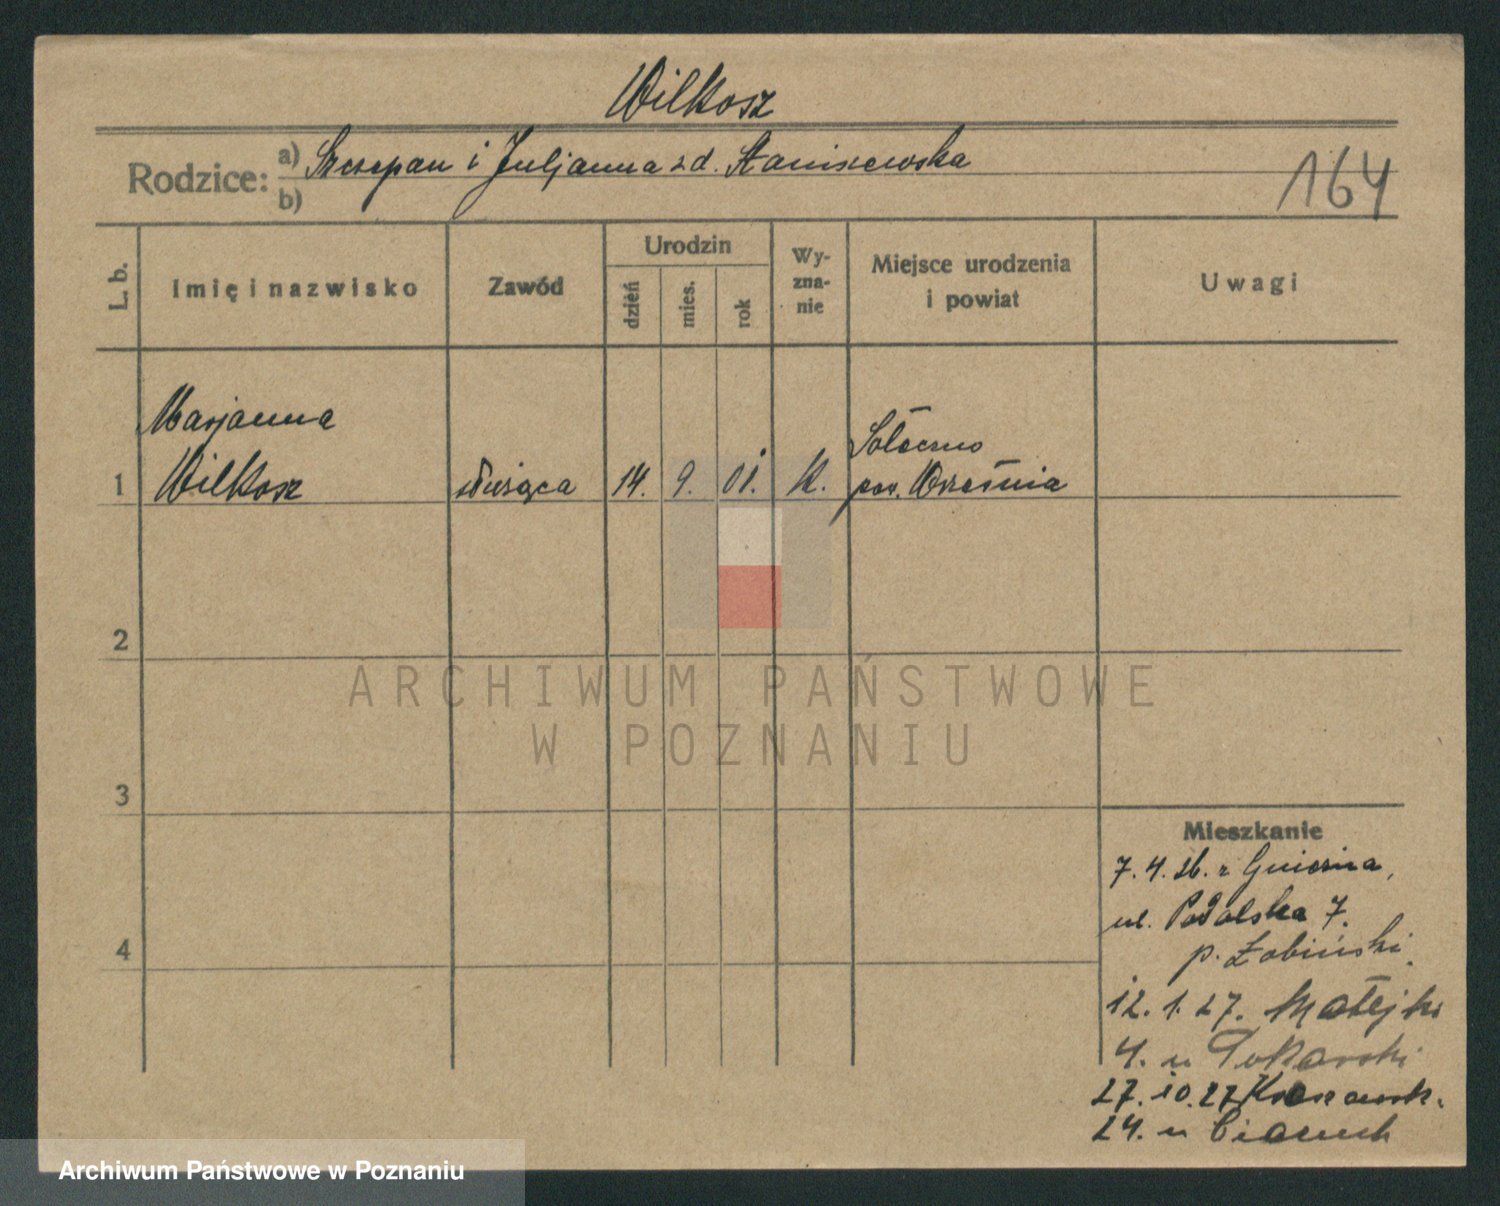 Wilkosz
Rodzice: a) Szczepan i Juljanna z d. Staniszewska
b)
164
L. b.
Imię i nazwisko
Zawód
Urodzin
dzień
mies.
rok
Wy-
zna-
nie
Miejsce urodzenia
i powiat
Uwagi
Marjanna
1 Wilkosz służąca 14. 9. 01. k.
Sołeczno
pow. Września
2
3
4
ARCHIWUM PAŃSTWOWE
W POZNANIU
Mieszkanie
7. 4. 26. z Gniezna,
ul. Podolska 7.
p. Żabiński.
12. 1. 27. Matejki
4. u Tokarski
27. 10. 27
24. u
Archiwum Państwowe w Poznaniu